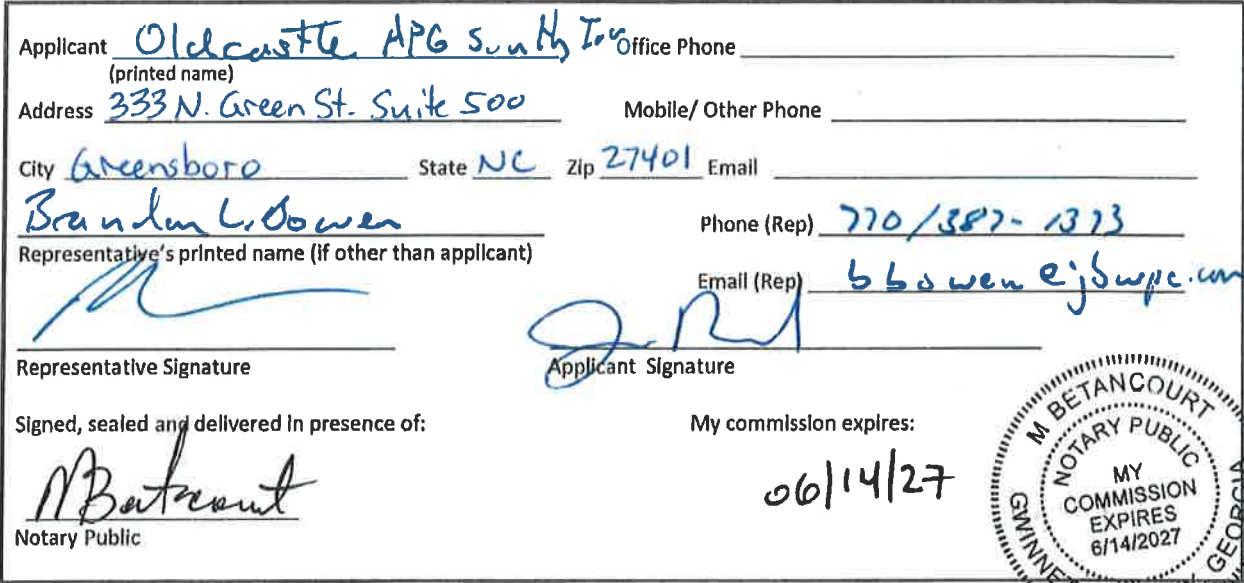 Applicant Oldcastle APG South, Inc Office Phone
(printed name)
Address 333 N. Green St. Suite 500 Mobile/ Other Phone
City Greensboro State NC Zip 27401 Email
Brandon L. Bowen Phone (Rep) 770/387-1373
Representative's printed name (if other than applicant)
Email (Rep) bbowen@jbwpc.com
Representative Signature Applicant Signature
Signed, sealed and delivered in presence of: My commission expires:
MBetancourt 06/14/27
Notary Public
M BETANCOURT
NOTARY PUBLIC
MY
COMMISSION
EXPIRES
6/14/2027
GEORGIA